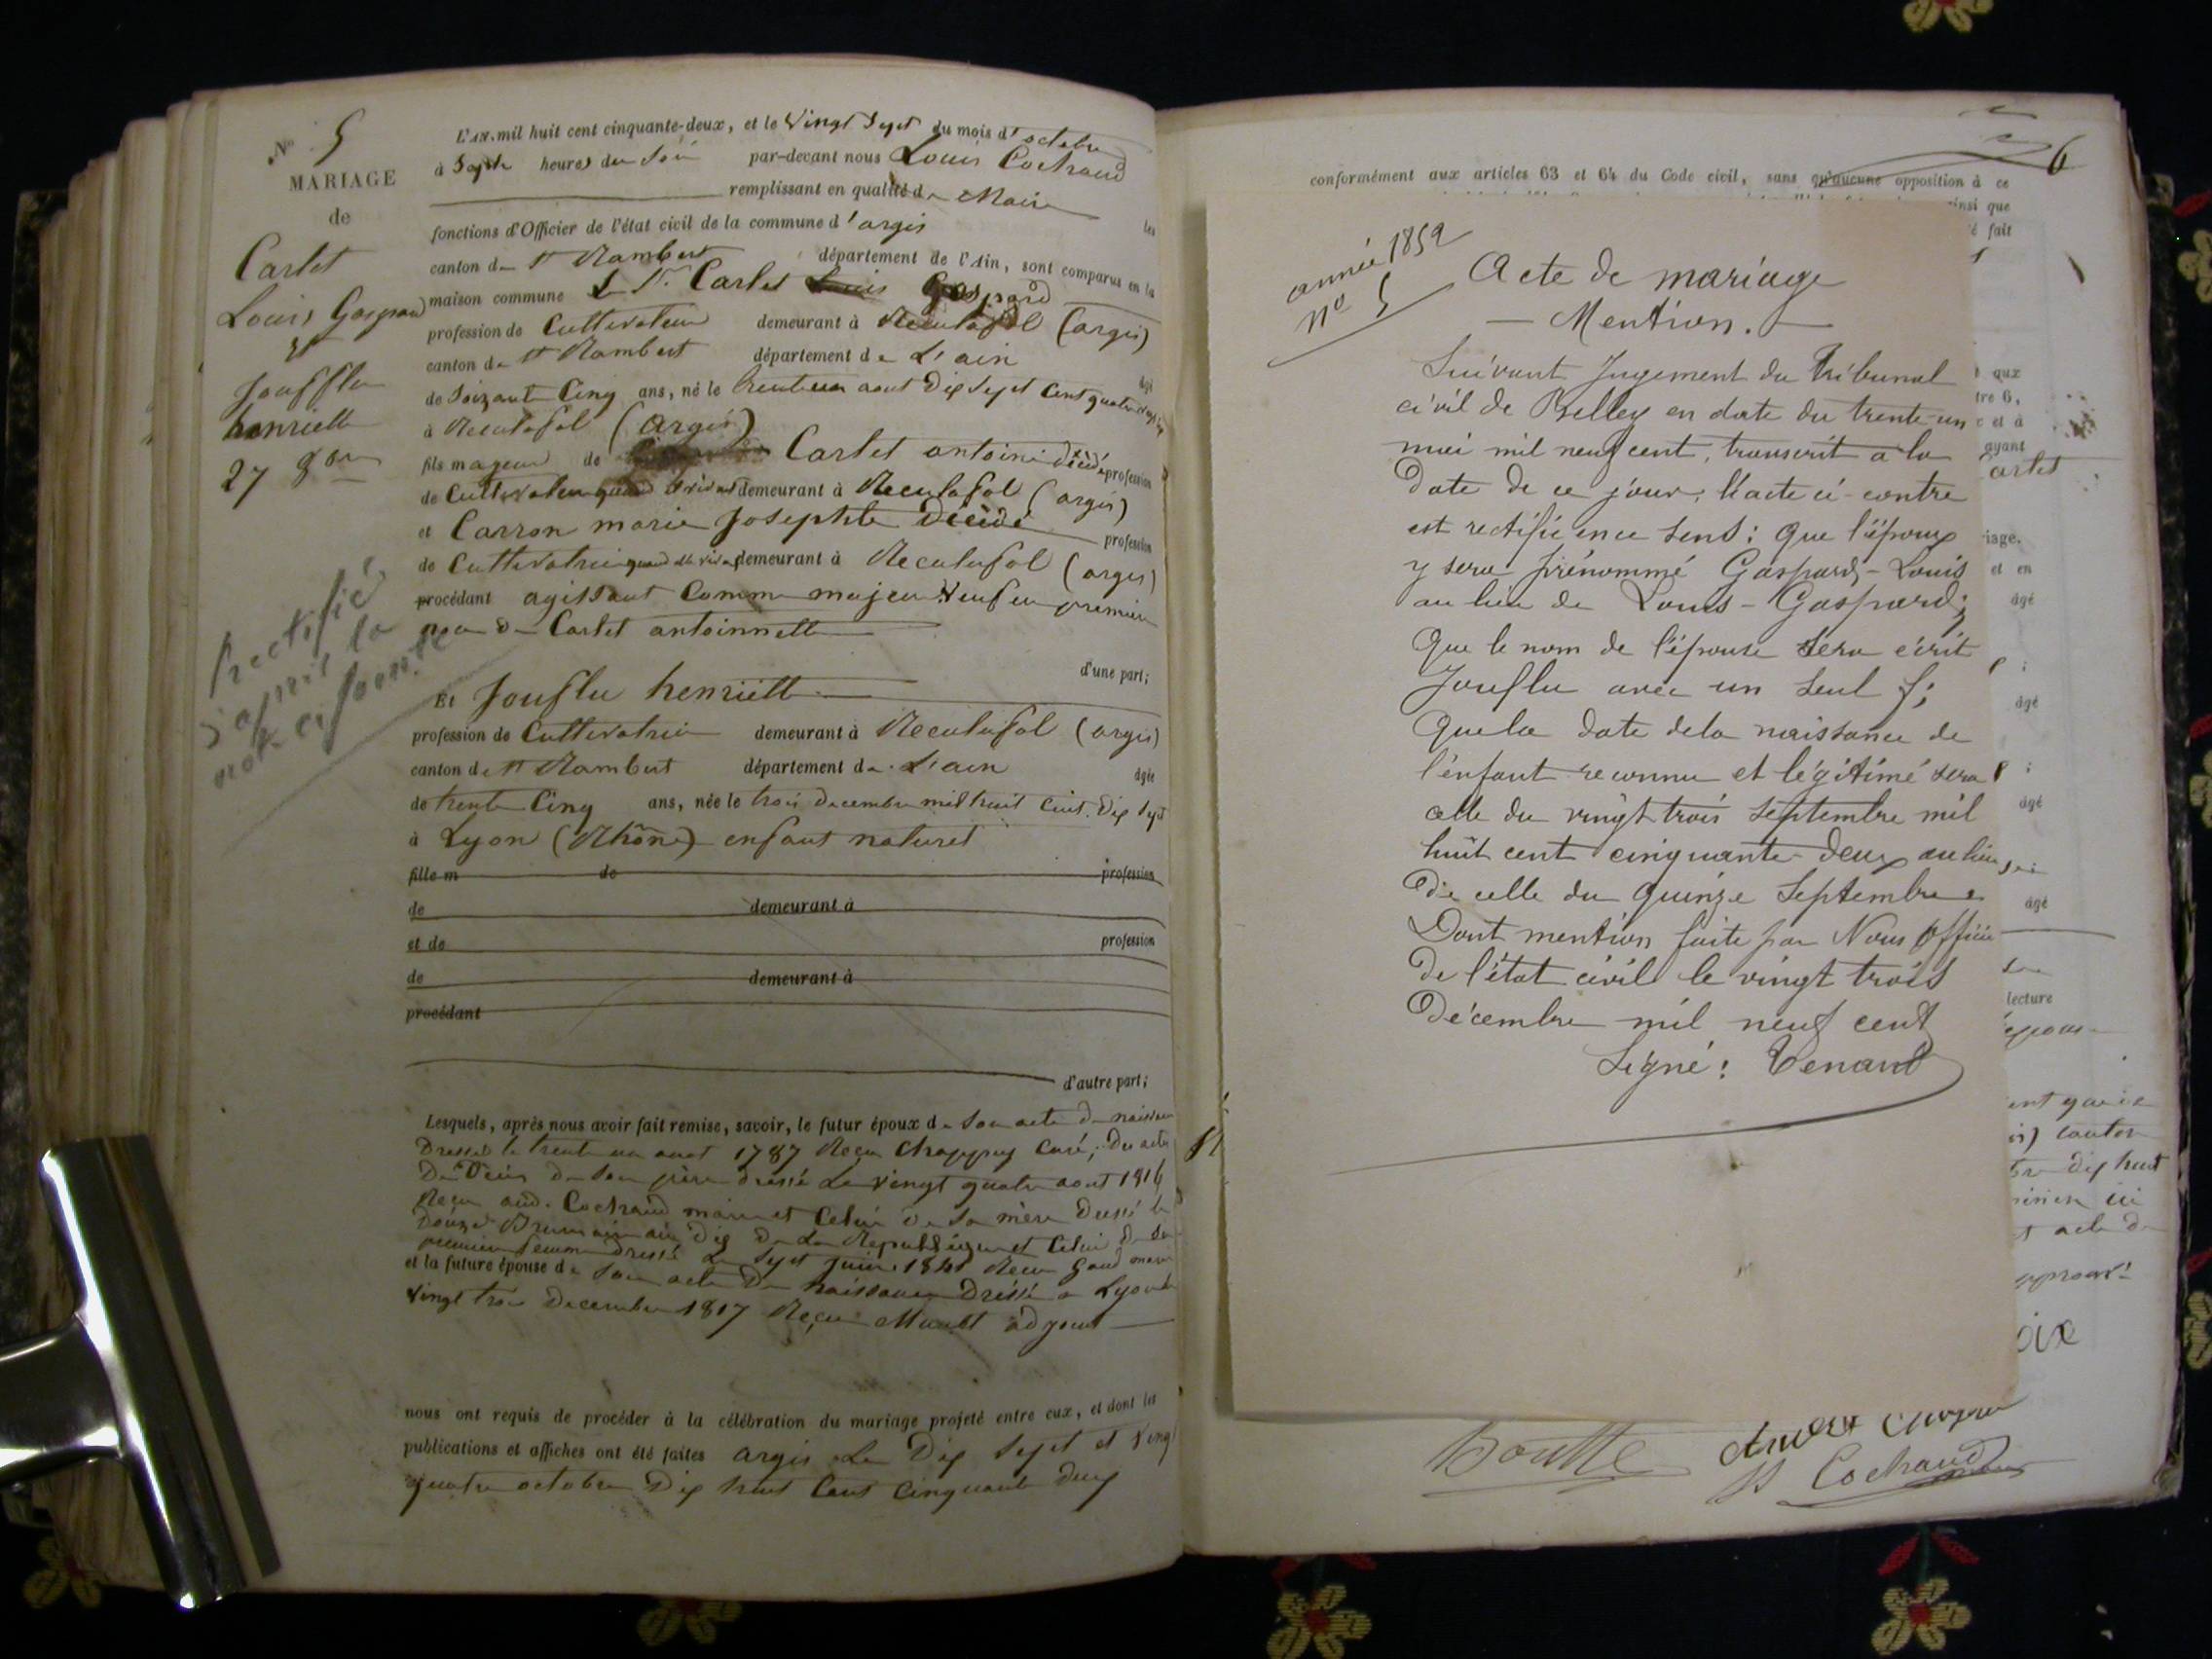 N° 5
MARIAGE
de
Carlet
Louis Gaspard
et
Joufflu
henriette
27 8bre
Rectifié
d'après la
note ci jointe
L'AN mil huit cent cinquante-deux, et le Vingt Sept du mois d'octobre
à Sept heures du Soir par-devant nous Louis Cochraud
remplissant en qualité de Maire les
fonctions d'Officier de l'état civil de la commune d'argis
canton de St Rambert département de l'Ain, sont comparus en la
maison commune Le Sr. Carlet Louis Gaspard
profession de Cultivateur demeurant à Reculafol (argis)
canton de St Rambert département de L'ain âgé
de Soixante Cinq ans, né le trente un aout Dix Sept Cent quatre vingt Sept
à Reculafol (argis)
fils majeur de Carlet antoine décédé profession
de Cultivateur quand vivait demeurant à Reculafol (argis)
et Carron marie Josephte Décédé profession
de Cultivatrice quand elle vivait demeurant à Reculafol (argis)
procédant agissant Comme majeur Veuf en premier
noce de Carlet antoinnette
d'une part;
Et Jouflu henriette
profession de Cultivatrice demeurant à Reculafol (argis)
canton de St Rambert département de L'ain âgée
de trente Cinq ans, née le trois decembre mil huit Cent Dix Sept
à Lyon (Rhône) enfant naturel
fille m de profession
de demeurant à
et de profession
de demeurant à
procédant
d'autre part;
Lesquels, après nous avoir fait remise, savoir, le futur époux de Son acte de naissance
Dressé le trente un aout 1787 Reçu Chappuy Curé, Du acte
De Décès de Son père dressé Le Vingt quatre aout 1816
Reçu and. Cochraud maire et Celui de Sa mère Dressé le
Douze Brumaire an Dix De La République et Celui de Sa
premier femme dressé Le Sept Juin Reçu maire
et la future épouse de Son acte De naissance Dréssé a Lyon le
Vingt trois Decembre 1817 Reçu adjoint
nous ont requis de procéder à la célébration du mariage projeté entre eux, et dont les
publications et affiches ont été faites argis Le Dix Sept et Vingt
quatre octobre Dix huit Cent Cinquante deux
6
conformément aux articles 63 et 64 du Code civil, sans qu'aucune opposition à ce
ainsi que
é fait
année 1852
N° 5
Acte de mariage
— Mention. —
Suivant Jugement du Tribunal
civil de Belley en date du trente-un
mai mil neuf cent, transcrit a la
Date de ce jour, l'acte ci-contre
est rectifié en ce sens: Que l'époux
y sera prénommé Gaspard-Louis
au lieu de Louis-Gaspard;
Que le nom de l'épouse sera écrit
Jouflu avec un seul f;
Que la date de la naissance de
l'enfant reconnu et légitimé sera
celle du vingt trois Septembre mil
huit cent cinquante-deux au lieu
De celle du quinze Septembre
Dont mention faite par Nous officier
De l'état civil le vingt trois
Décembre mil neuf cent
Signé: Tenand
aux
tre 6,
et à
ayant
Carlet
iage.
et en
âgé
âgé
âgé
âgé
lecture
Cochraud